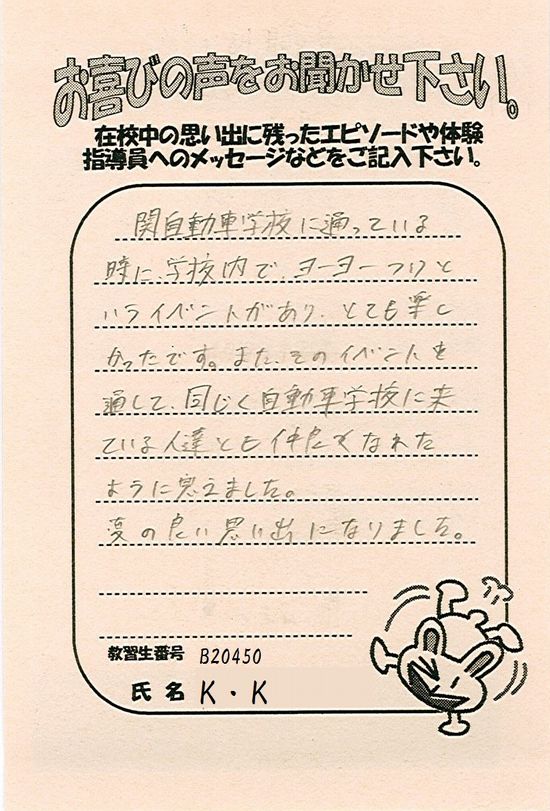 お喜びの声をお聞かせ下さい。
在校中の思い出に残ったエピソードや体験
指導員へのメッセージなどをご記入下さい。
関自動車学校に通っている
時に、学校内で、ヨーヨーつりと
いうイベントがあり、とても楽し
かったです。また、そのイベントを
通して、同じく自動車学校に来
ている人達とも仲良くなれた
ように思えました。
夏の良い思い出になりました。
教習生番号 B20450
氏名 K・K